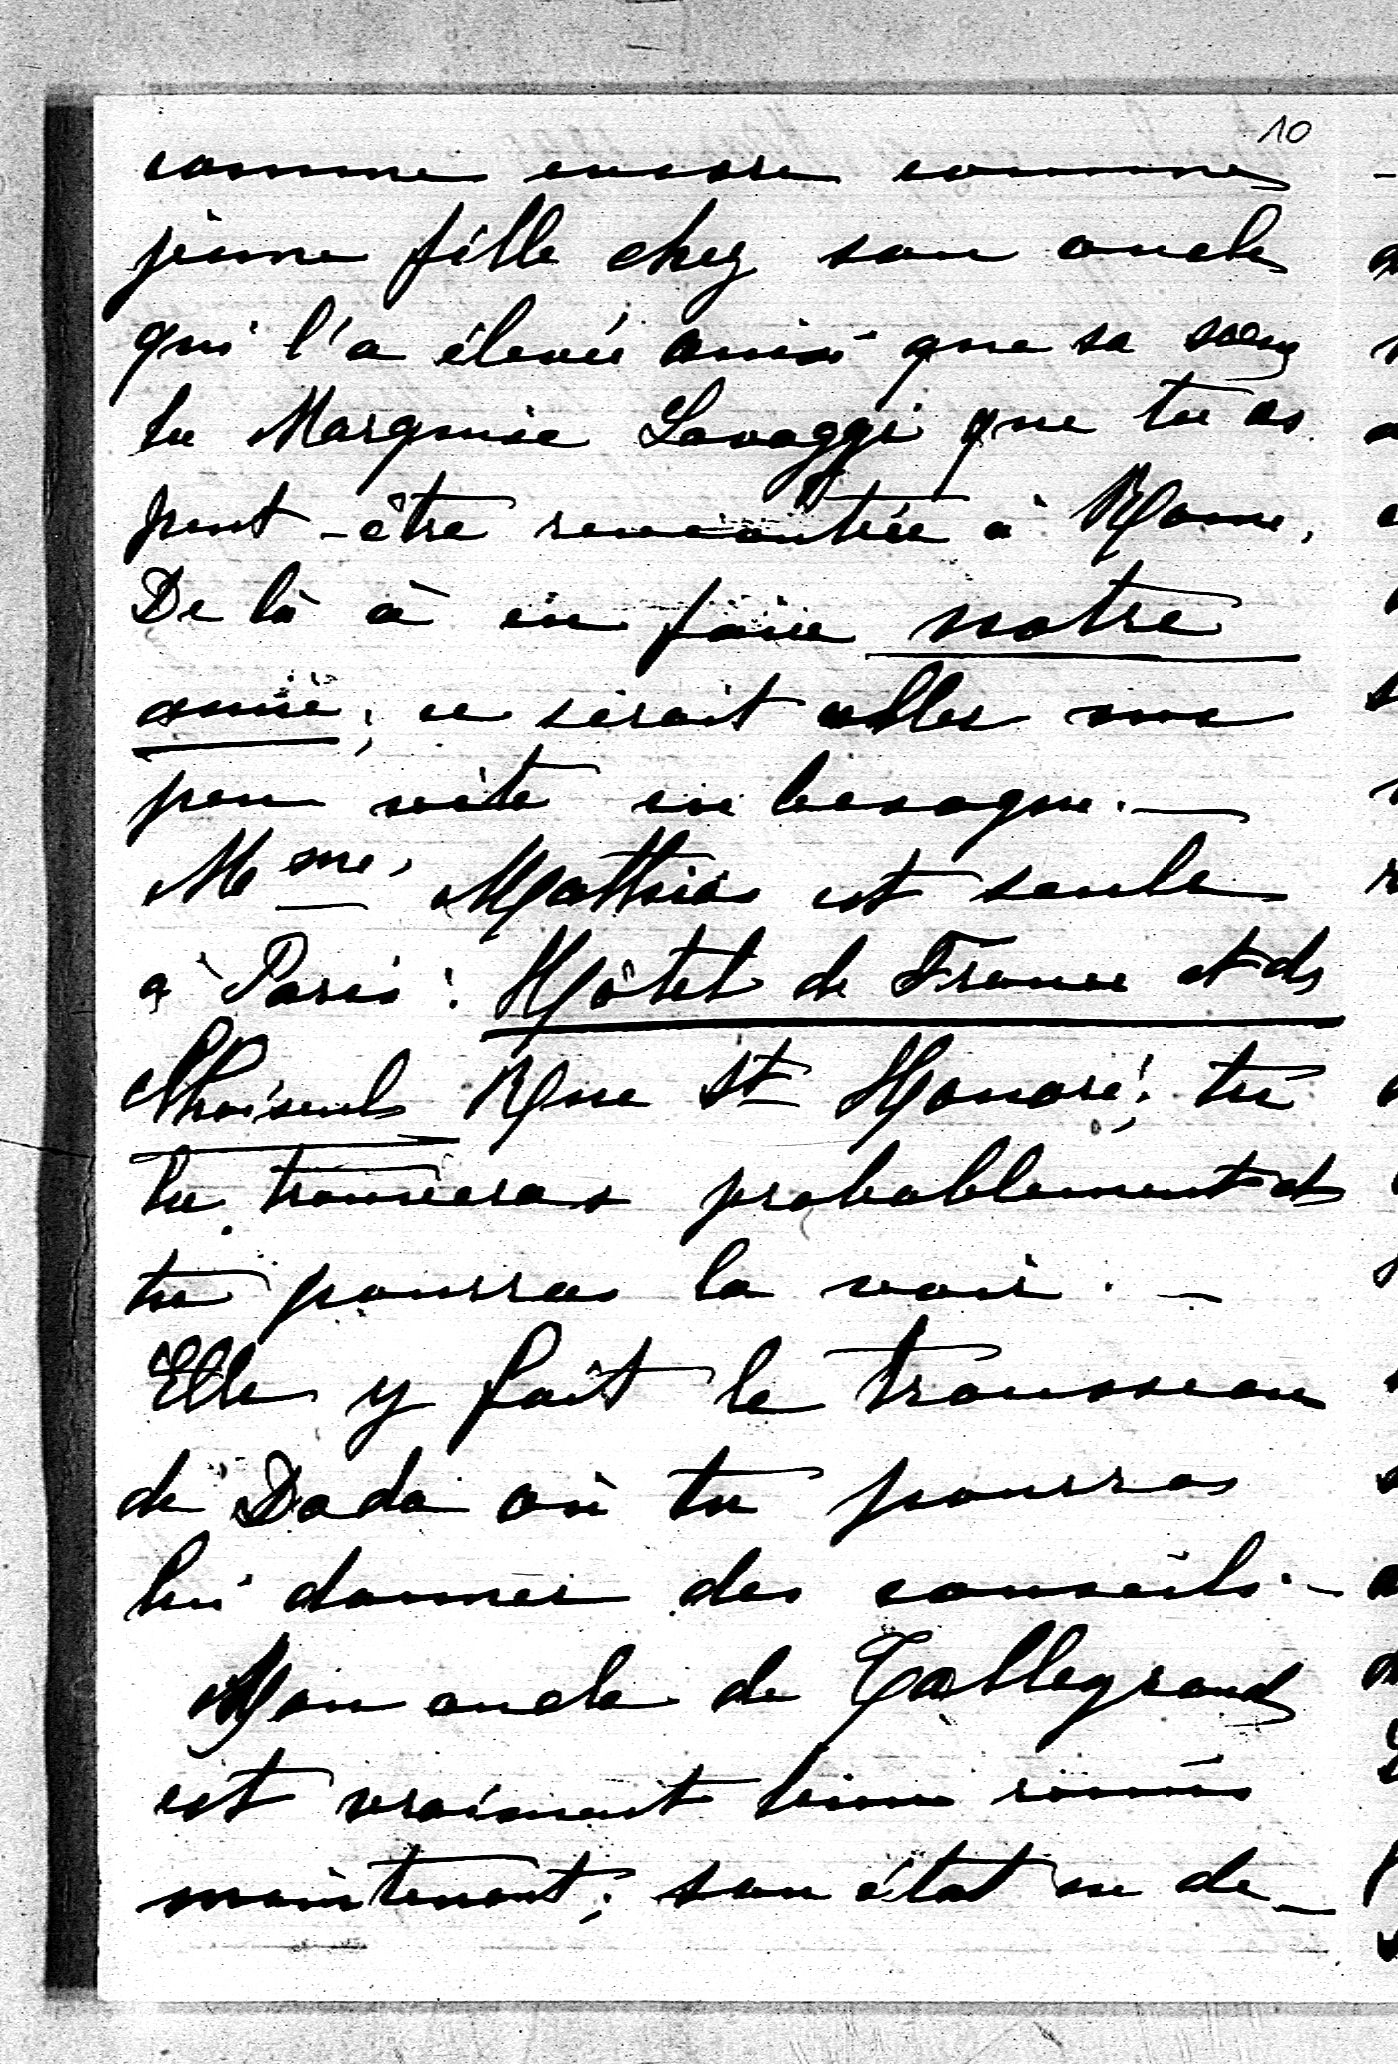 10
comme encore comme
jeune fille chez son oncle
qui l'a élevée ainsi que sa soeur
la Marquise Lavaggi que tu as
peut-être rencontrée à Rome.
De là à en faire notre
amie, ce serait aller une
peu vite en besogne. —
Mme. Mathias est seule
à Paris : Hôtel de France et de
Choiseul Rue St Honoré; tu
la trouveras probablement et
tu pourras la voir. —
Elle y fait le trousseau
de Dada où tu pourras
lui donner des conseils. —
Mon oncle de Tallegrand
est vraiment bien remis
maintenant; son état ne de-